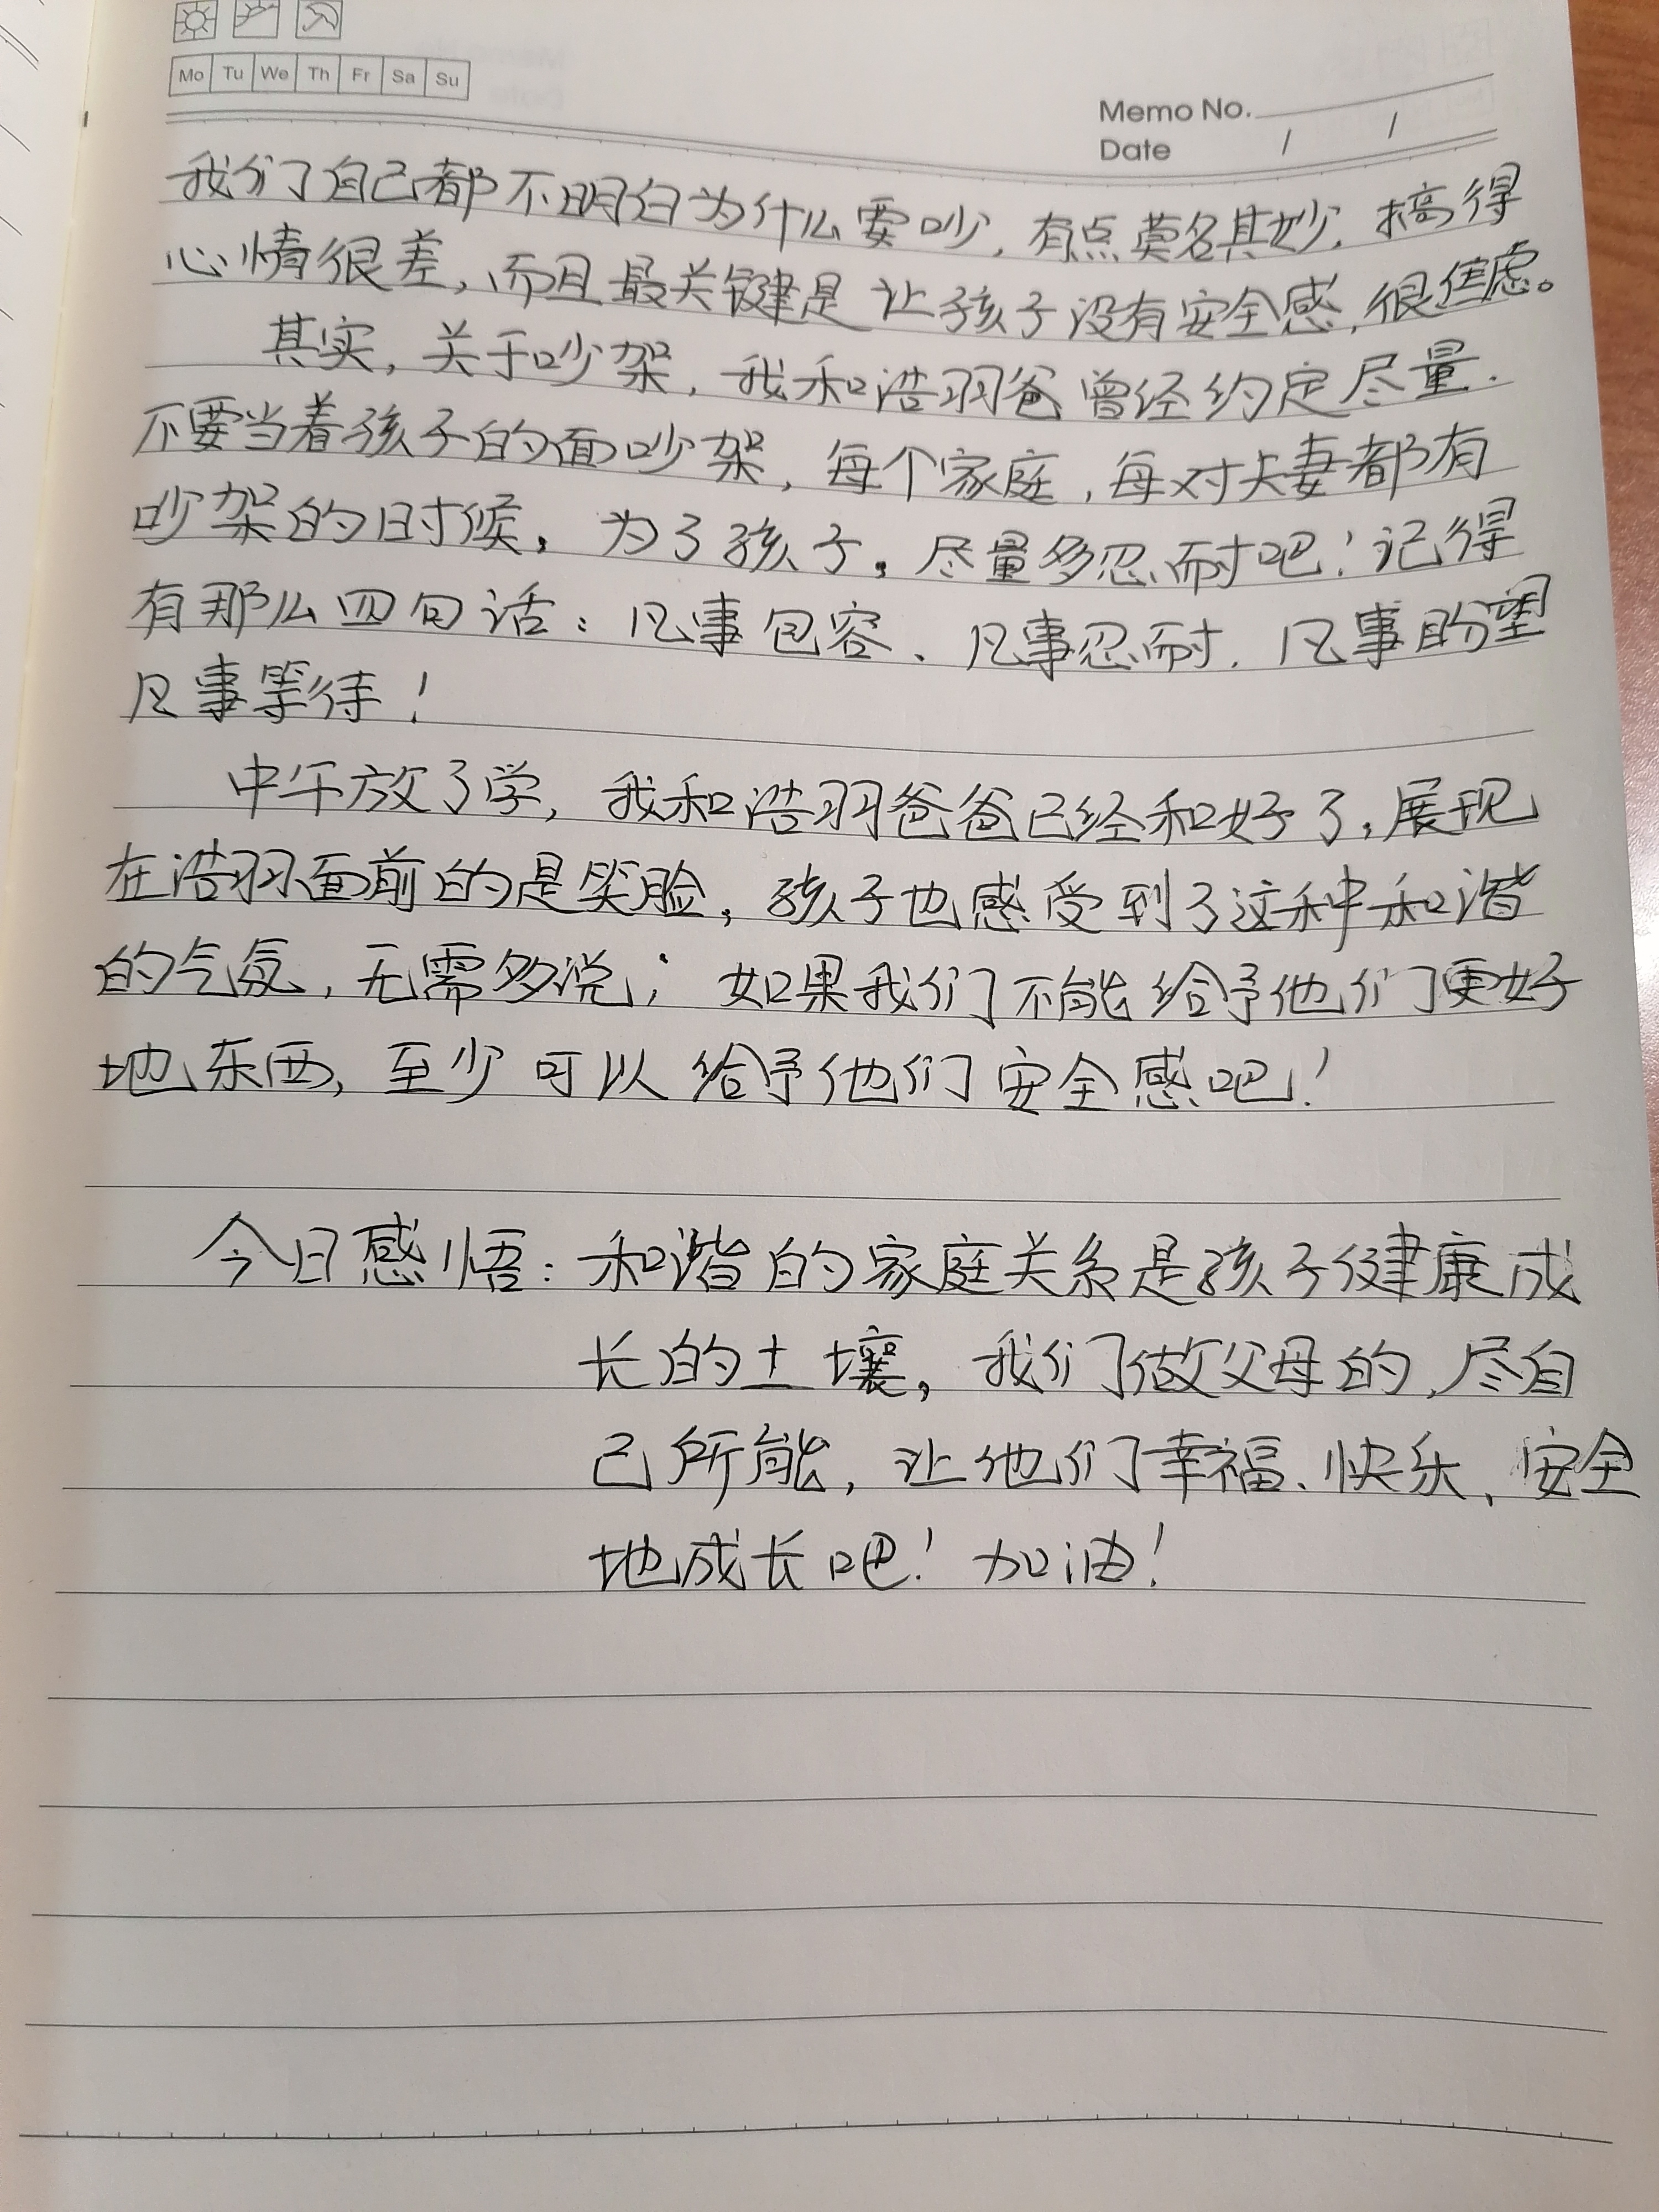 Mo Tu We Th Fr Sa Su
Memo No.
Date / /
我们自己都不明白为什么要吵,有点莫名其妙,搞得
心情很差,而且最关键是让孩子没有安全感,很焦虑。
其实,关于吵架,我和浩羽爸曾经约定尽量.
不要当着孩子的面吵架,每个家庭,每对夫妻都有
吵架的时候,为了孩子,尽量多忍耐吧!记得
有那么四句话:凡事包容、凡事忍耐,凡事盼望
凡事等待!
中午放了学,我和浩羽爸爸已经和好了,展现
在浩羽面前的是笑脸,孩子也感受到了这种和谐
的气氛,无需多说;如果我们不能给予他们更好
地东西,至少可以给予他们安全感吧!
今日感悟:和谐的家庭关系是孩子健康成
长的土壤,我们做父母的,尽自
己所能,让他们幸福、快乐、安全
地成长吧!加油!